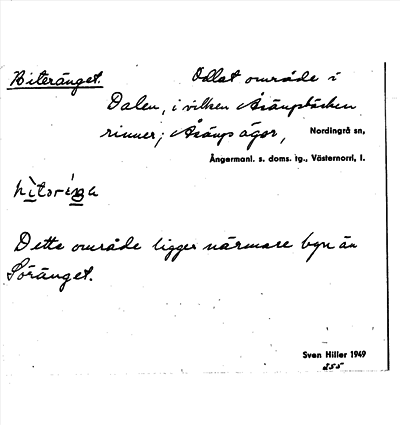 Niteränget. Odlat område i
Dalen, i vilken Åsängsbäcken
rinner; Åsängs ägor, Nordingrå sn,
Ångermanl. s. doms. tg., Västernorrl. l.
nìtəríŋa
Detta område ligger närmare byn än
Söränget.
Sven Hiller 1949
255